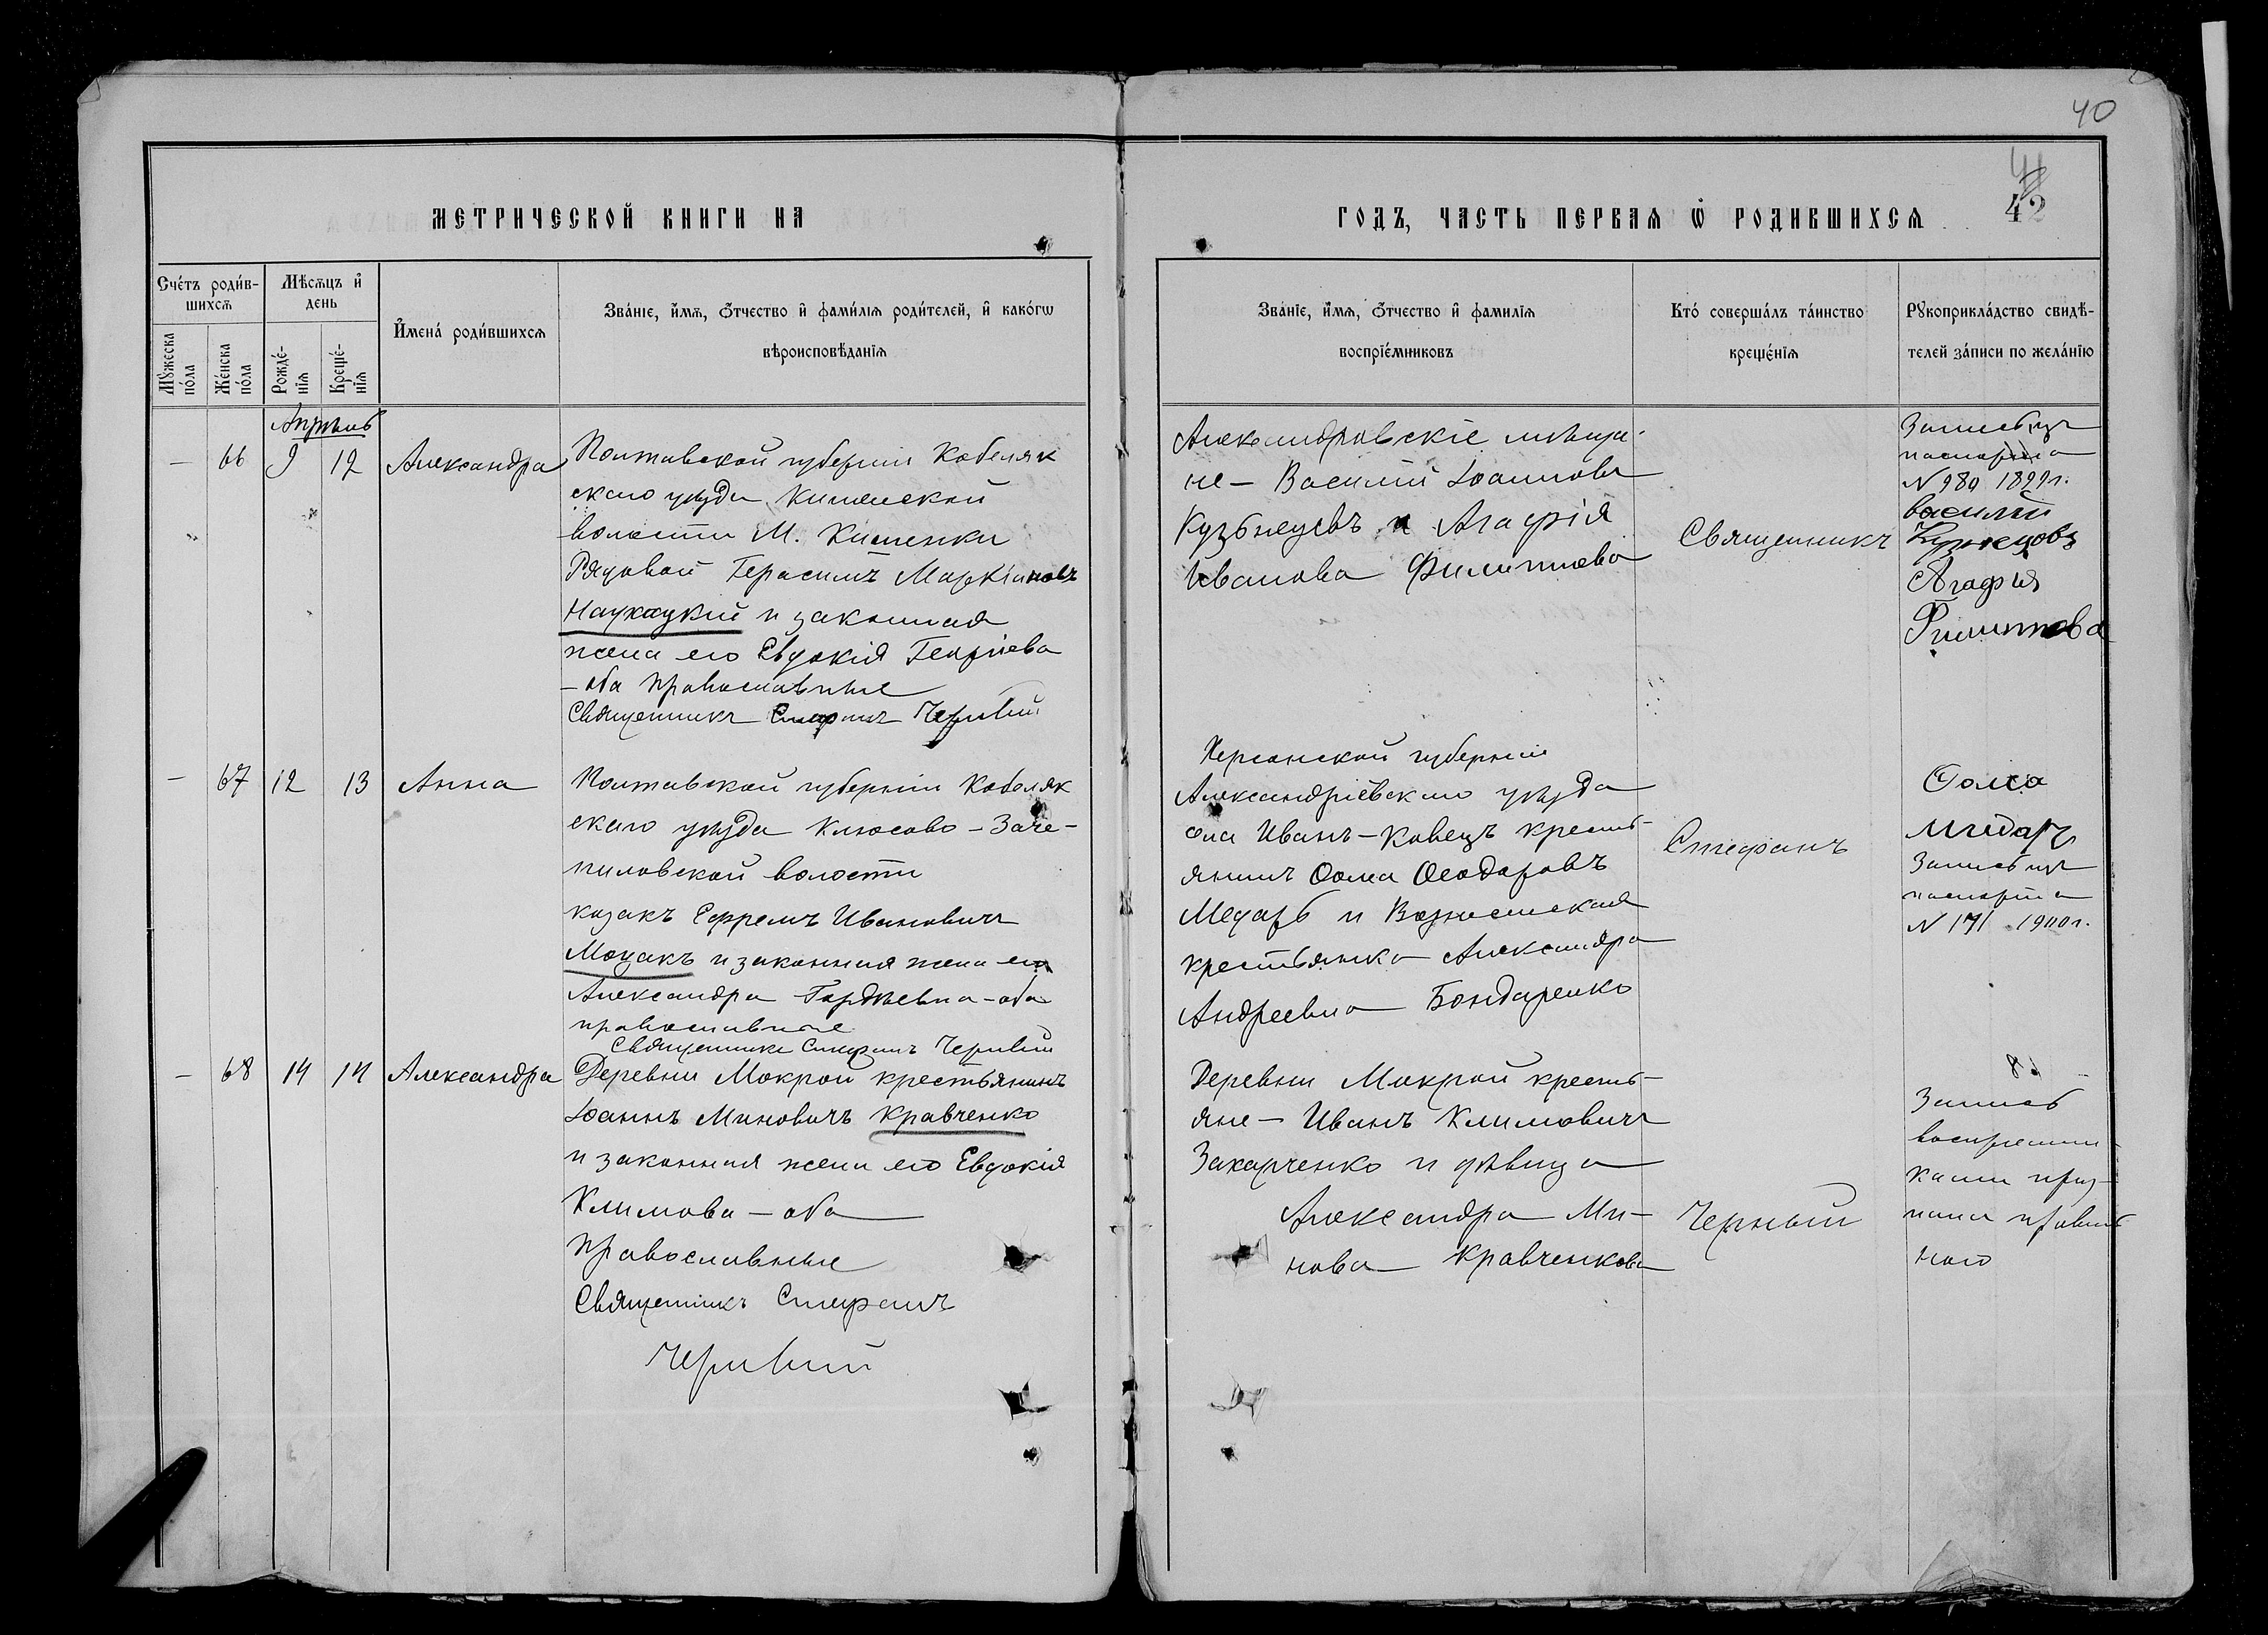 40
41
42
МЕТРИЧЕСКОЙ КНИГИ НА
ГОДЪ, ЧАСТЬ ПЕРВАЯ Ѡ РОДИВШИХСЯ
Сче́тъ роди́в-
шихсѧ
Мѣсѧцъ и҆
день
И҆мена̀ роди́вшихсѧ
Зва́нїе, и҆́мѧ, ѻ҆́тчество и҆ фами́лїѧ роди́телей, и҆ како́гѡ
вѣроисповѣ́данїѧ
Мꙋ́жеска
по́ла
Же́нска
по́ла
Рожде́-
нїѧ
Креще́-
нїѧ
Зва́нїе, и҆́мѧ, ѻ҆́тчество и҆ фамилїѧ
воспрїе́мниковъ
Кто̀ соверша́лъ та́инство
креще́нїѧ
Рꙋкоприкла́дство свидѣ́-
телей за́писи по жела́нїю
Апрѣль
— 66 9 12 Александра
Полтавской губерніи Кобеляк
скаго уѣзда Кишенской
волости М. Кишенки
Рядовой Герасимъ Маркіановъ
Наухацкий и законная
жена его Евдокія Георгіева
— оба православные
Священникъ Стефанъ Черный
Александровскіе мѣща-
не — Василій Іоанновъ
Кузьнецовъ и Агафія
Иванова Филиппова
Священникъ
Запись изъ
паспорта
N 980 1899 г.
Василий
Кузнецовъ
Агафия
Филиппова
— 67 12 13 Анна
Полтавской губерніи Кобеляк
скаго уѣзда Клюсово-Заче-
пиловской волости
козакъ Ефремъ Ивановичъ
Моцакъ и законная жена его
Александра Гордѣевна — оба
православные
Священникъ Стефанъ Черный
Херсонской губерніи
Александрійскаго уѣзда
села Иванъ-Ковецъ кресть-
янинъ Ѳома Ѳеодоровъ
Медарь и Вознесенская
крестьянка Александра
Андреевна Бондаренко
Стефанъ
Ѳома
Мидарь
Запись изъ
паспорта
N 171 1900 г.
— 68 14 14 Александра
Деревни Мокрой крестьянинъ
Іоаннъ Миновичъ Кравченко
и законная жена его Евдокія
Климова — оба
православные
Священникъ Стефанъ
Черный
Деревни Мокрой кресть-
яне — Иванъ Климовичъ
Захарченко и дѣвица
Александра Ми-
нова Кравченкова
Черный
Запись
воспріемни-
ками приз-
нана правиль
ною